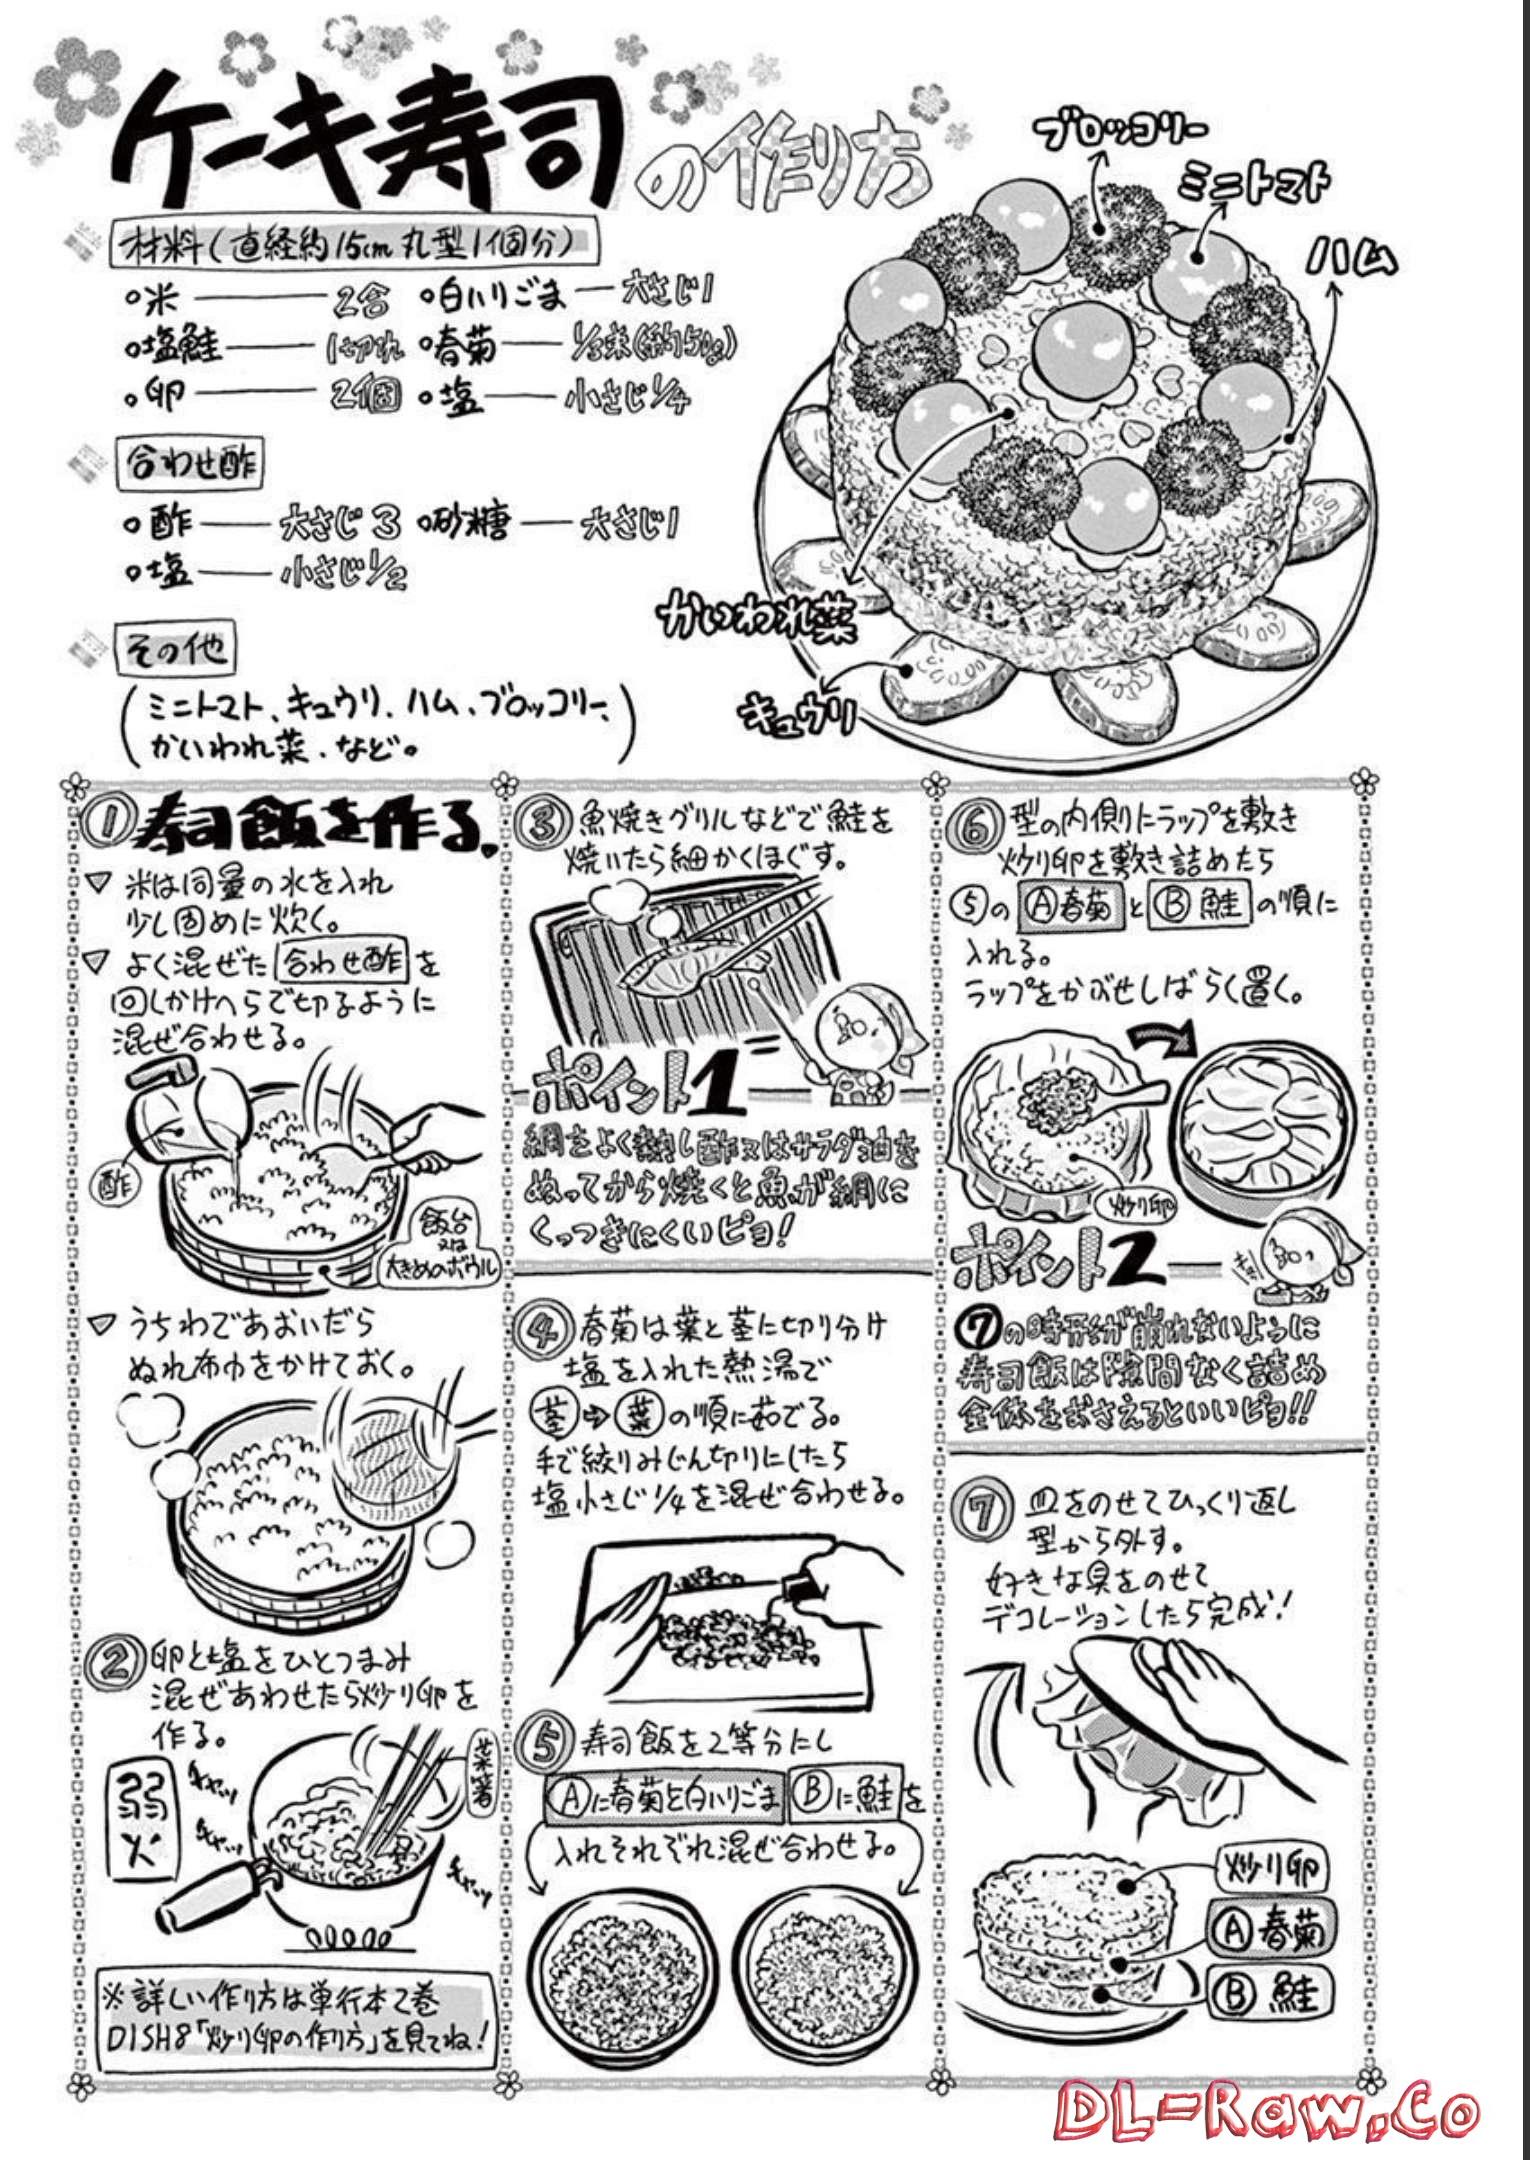 ケーキ寿司の作り方
材料(直経約15cm丸型1個分)
○米 2合 ○白いりごま 大さじ1
○塩鮭 1切れ ○春菊 1/3束(約50g)
○卵 2個 ○塩 小さじ1/4
合わせ酢
○酢 大さじ3 ○砂糖 大さじ1
○塩 小さじ1/2
その他
(ミニトマト、キュウリ、ハム、ブロッコリー、
かいわれ菜、など。)
ブロッコリー
ミニトマト
ハム
かいわれ菜
キュウリ
①寿司飯を作る。
▽米は同量の水を入れ
少し固めに炊く。
▽よく混ぜた合わせ酢を
回しかけへらで切るように
混ぜ合わせる。
酢
飯台
又は
大きめのボウル
▽うちわであおいだら
ぬれ布巾をかけておく。
②卵と塩をひとつまみ
混ぜあわせたら炒り卵を
作る。
弱火
菜箸
※詳しい作り方は単行本2巻
DISH8「炒り卵の作り方」を見てね!
③魚焼きグリルなどで鮭を
焼いたら細かくほぐす。
ポイント1
網をよく熱し酢又はサラダ油を
ぬってから焼くと魚が網に
くっつきにくいピヨ!
④春菊は葉と茎に切り分け
塩を入れた熱湯で
茎⇨葉の順に茹でる。
手で絞りみじん切りにしたら
塩小さじ1/4を混ぜ合わせる。
⑤寿司飯を2等分にし
Ⓐに春菊と白いりごまⒷに鮭を
入れそれぞれ混ぜ合わせる。
⑥型の内側にラップを敷き
炒り卵を敷き詰めたら
⑤のⒶ春菊とⒷ鮭の順に
入れる。
ラップをかぶせしばらく置く。
炒り卵
ポイント2
⑦の時形が崩れないように
寿司飯は隙間なく詰め
全体をおさえるといいピヨ!!
⑦皿をのせてひっくり返し
型から外す。
好きな具をのせて
デコレーションしたら完成!
炒り卵
Ⓐ春菊
Ⓑ鮭
DL-Raw.Co